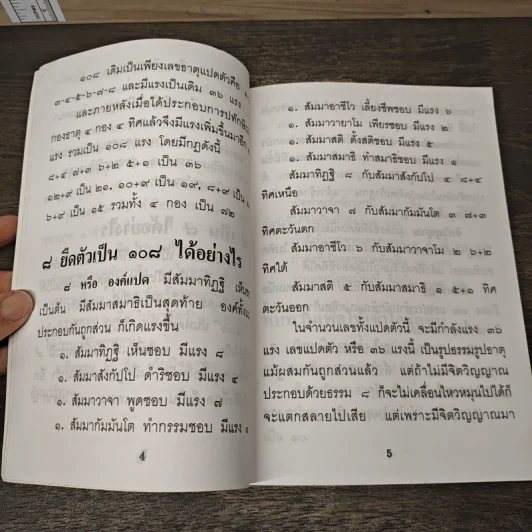 ๑๐๘ เดิมเป็นเพียงเลขธาตุแปดตัวคือ
๓-๔-๕-๖-๗-๘ และมีแรงเป็นเดิม ๓๖ แรง
และภายหลังเมื่อได้ประกอบการปฟักธิ
กองธาตุ ๔ กอง ๔ ทิศแล้วจึงมีแรงเพิ่มขึ้นมาอีก
แรง รวมเป็น ๑๐๘ แรง โดยมีกฎดังนี้
๘+๔ ๗+๓ ๖+๒ ๕+๑ เป็น ๓๖
๑๒+๙ เป็น ๒๑, ๑๐+๙ เป็น ๑๙, ๘+๙ เป็น
๖+๙ เป็น ๑๕ รวมทั้ง ๔ กอง เป็น ๗๒
๘ ยืดตัวเป็น ๑๐๘ ได้อย่างไร
๘ หรือ องค์แปด มีสัมมาทิฏฐิ เห็น
เป็นต้น มีสัมมาสมาธิเป็นสุดท้าย องค์ทั้ง
ประกอบกันถูกส่วน ก็เกิดแรงขึ้น
๑. สัมมาทิฏฐิ เห็นชอบ มีแรง ๘
๑. สัมมาสังกัปโป ดำริชอบ มีแรง ๔
๑. สัมมาวาจา พูดชอบ มีแรง ๗
๑. สัมมากัมมันโต ทำกรรมชอบ มีแรง
4
๑. สัมมาอาชีโว เลี้ยงชีพชอบ มีแรง ๖
๑. สัมมาวายาโม เพียรชอบ มีแรง ๒
๑. สัมมาสติ ตั้งสติชอบ มีแรง ๕
๑. สัมมาสมาธิ ทำสมาธิชอบ มีแรง ๑
สัมมาทิฏฐิ ๘ กับสัมมาสังกัปโป ๔ ๘+๔
ทิศเหนือ
สัมมาวาจา ๗ กับสัมมากัมมันโต ๓ ๗+๓
ทิศตะวันตก
สัมมาอาชีโว ๖ กับสัมมาวาจาโม ๒ ๖+๒
ทิศใต้
สัมมาสติ ๕ กับสัมมาสมาธิ ๑ ๕+๑ ทิศ
ตะวันออก
ในจำนวนเลขทั้งแปดตัวนี้ จะมีกำลังแรง ๓๖
แรง เลขแปดตัว หรือ ๓๖ แรงนี้ เป็นรูปธรรมรูปธาตุ
แม้ผสมกันถูกส่วนแล้ว แต่ถ้าไม่มีจิตวิญญาณ
ประกอบด้วยธรรม ๘ ก็จะไม่เคลื่อนไหวหมุนไปได้ก็
จะแตกสลายไปเสีย แต่เพราะมีจิตวิญญาณมา
5